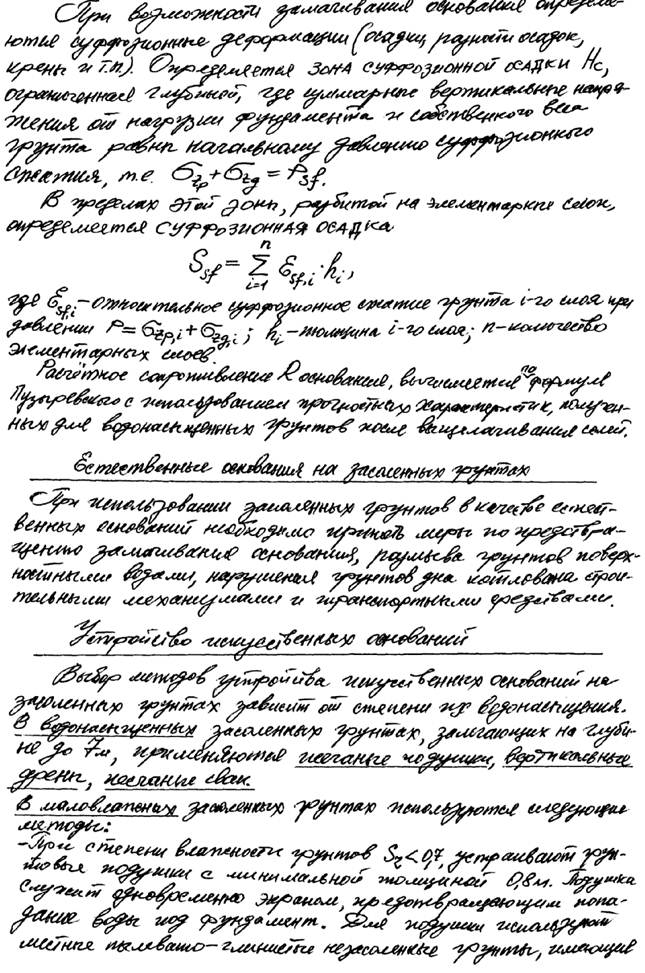 При возможности замачивания основания определя-
ются суффозионные деформации (осадки, разности осадок,
крены и т.п.). Определяется зона суффозионной осадки Hc,
ограниченная глубиной, где суммарные вертикальные напря-
жения от нагрузки фундамента и собственного веса
грунта равны начальному давлению суффозионного
сжатия, т.е. σzp + σzg = Psf.
В пределах этой зоны, разбитой на элементарные слои,
определяется суффозионная осадка
Ssf = Σ(i=1, n) εsf,i · hi,
где εsf,i – относительное суффозионное сжатие грунта i-го слоя при
давлении P = σzp,i + σzg,i; hi – толщина i-го слоя; n – количество
элементарных слоев.
Расчётное сопротивление R основания, вычисляется по формуле
Пузыревского с использованием прочностных характеристик, получен-
ных для водонасыщенных грунтов после выщелачивания солей.
Естественные основания на засоленных грунтах
При использовании засоленных грунтов в качестве естест-
венных оснований необходимо принять меры по предотвра-
щению замачивания основания, размыва грунтов поверх-
ностными водами, нарушения грунтов дна котлована строи-
тельными механизмами и транспортными средствами.
Устройство искусственных оснований
Выбор методов устройства искусственных оснований на
засоленных грунтах зависит от степени их водонасыщения.
В водонасыщенных засоленных грунтах, залегающих на глуби-
не до 7м, применяются песчаные подушки, вертикальные
дрены, песчаные сваи.
В маловлажных засоленных грунтах используются следующие
методы:
– При степени влажности грунтов Sr < 0,7, устраивают грун-
товые подушки с минимальной толщиной 0,8м. Подушка
служит одновременно экраном, предотвращающим попа-
дание воды под фундамент. Для подушки используют
местные пылевато-глинистые незасоленные грунты, имеющие